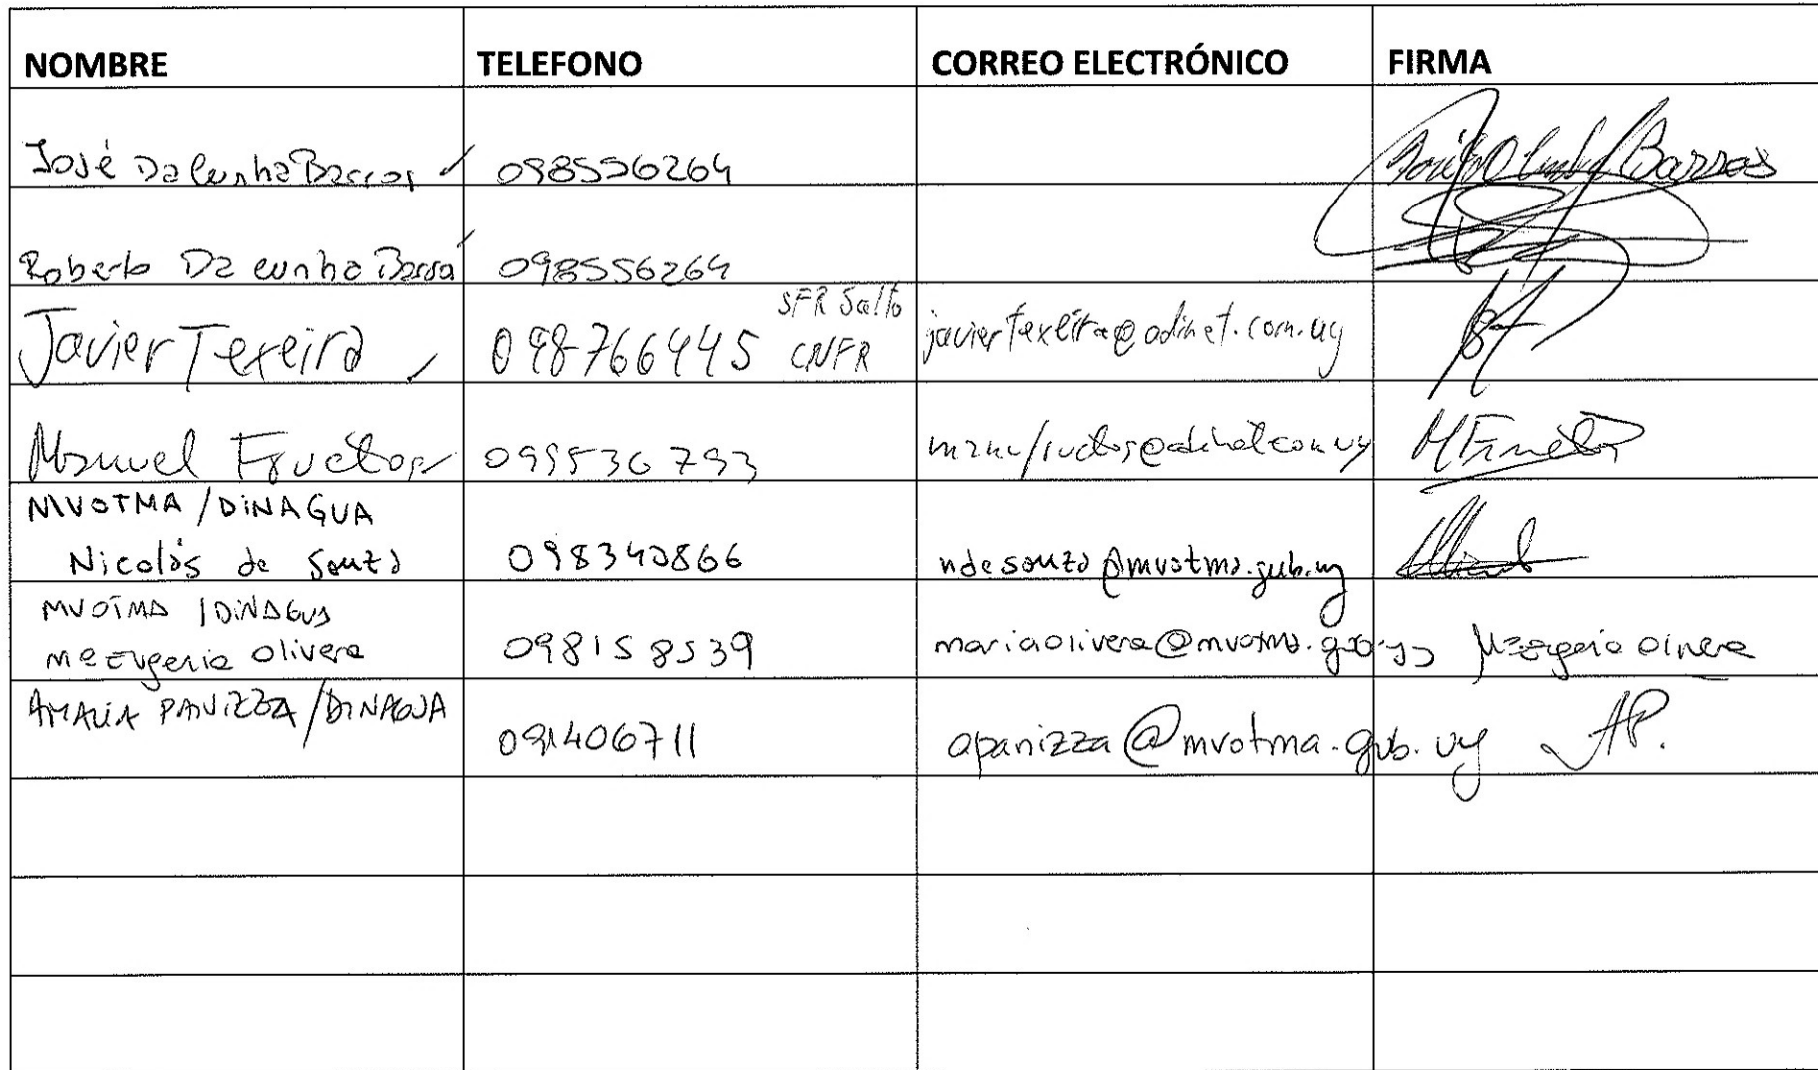 NOMBRE TELEFONO CORREO ELECTRÓNICO FIRMA
José Da Cunha Barros 098556264 Barros
Roberto Da cunha Barro 098556264
SFR Salto
Javier Texeira 098766445 CNFR javiertexeira@adinet.com.uy
Manuel Fructos 099536793 manufructos@adinet.com.uy MFructos
MVOTMA / DINAGUA
Nicolás de Souza 098340866 ndesouza@mvotma.gub.uy
MVOTMA / DINAGUA
Ma Eugenia Olivera 098158539 mariaolivera@mvotma.gub.uy Ma Eugenia Olivera
AMALIA PANIZZA / DINAGUA
091406711 apanizza@mvotma.gub.uy AP.